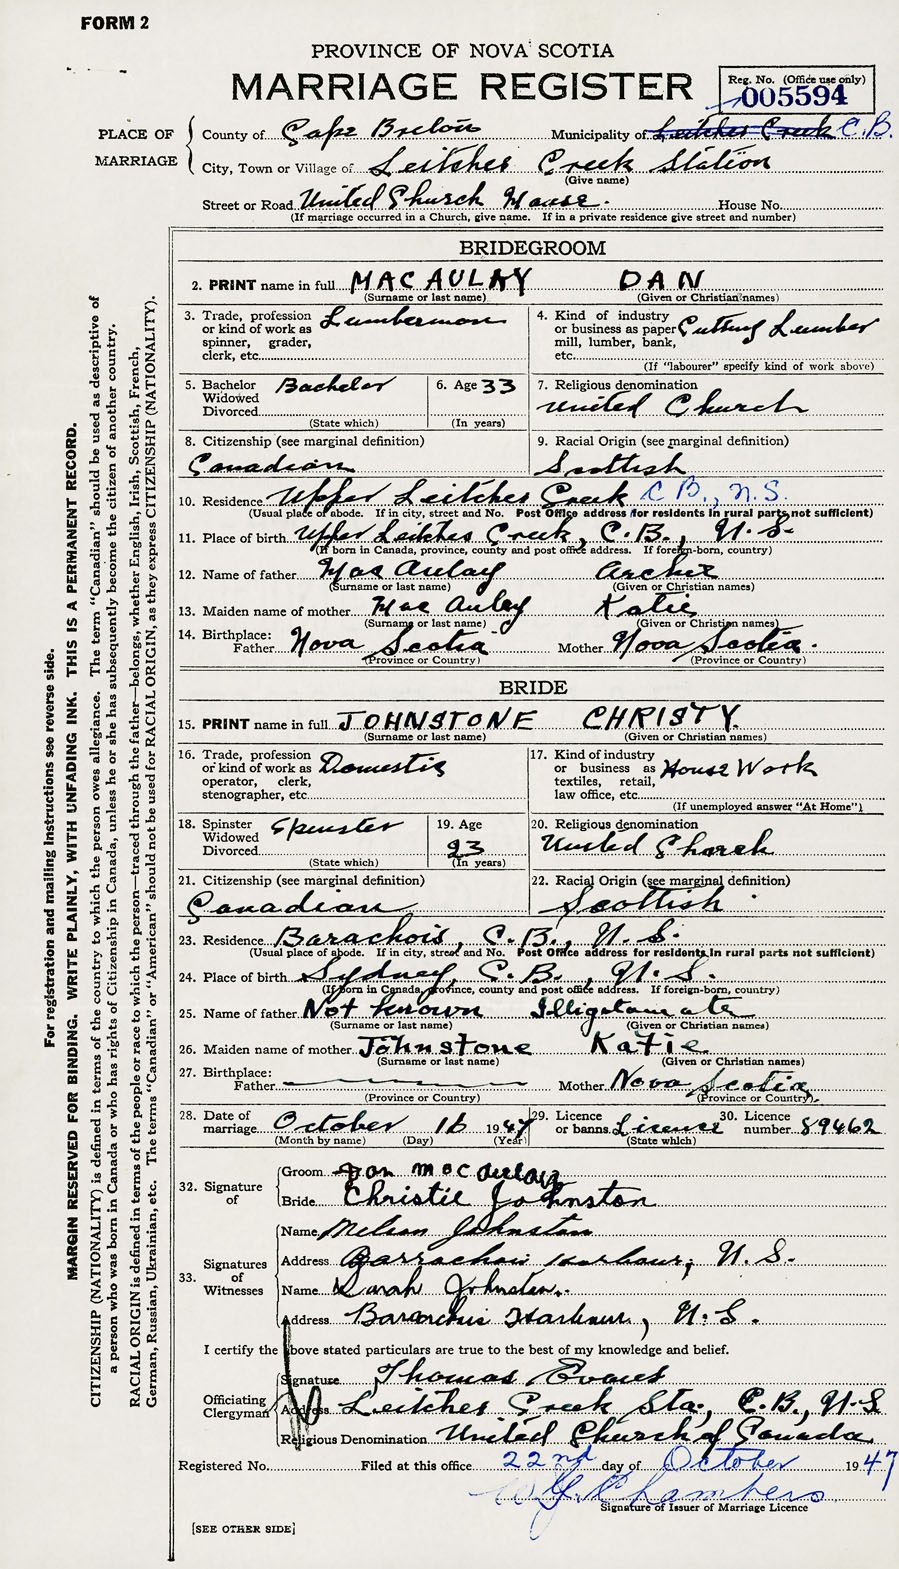 FORM 2
PROVINCE OF NOVA SCOTIA
MARRIAGE REGISTER
Reg. No. (Office use only)
005594
PLACE OF MARRIAGE
County of Cape Breton Municipality of Leitches Creek C.B.
City, Town or Village of Leitches Creek Station
(Give name)
Street or Road United Church Manse. House No.
(If marriage occurred in a Church, give name. If in a private residence give street and number)
BRIDEGROOM
2. PRINT name in full MACAULAY DAN
(Surname or last name) (Given or Christian names)
3. Trade, profession or kind of work as spinner, grader, clerk, etc. Lumberman
4. Kind of industry or business as paper mill, lumber, bank, etc. Cutting Lumber
(If "labourer" specify kind of work above)
5. Bachelor Widowed Divorced Bachelor
(State which)
6. Age 33
(In years)
7. Religious denomination
United Church
8. Citizenship (see marginal definition)
Canadian
9. Racial Origin (see marginal definition)
Scottish
10. Residence Upper Leitches Creek C.B., N.S.
(Usual place of abode. If in city, street and No. Post Office address for residents in rural parts not sufficient)
11. Place of birth Upper Leitches Creek, C.B., N.S.
(If born in Canada, province, county and post office address. If foreign-born, country)
12. Name of father Mac Aulay Archie
(Surname or last name) (Given or Christian names)
13. Maiden name of mother Mac Auley Katie
(Surname or last name) (Given or Christian names)
14. Birthplace:
Father Nova Scotia Mother Nova Scotia.
(Province or Country) (Province or Country)
BRIDE
15. PRINT name in full JOHNSTONE CHRISTY.
(Surname or last name) (Given or Christian names)
16. Trade, profession or kind of work as operator, clerk, stenographer, etc. Domestic
17. Kind of industry or business as textiles, retail, law office, etc. House Work
(If unemployed answer "At Home")
18. Spinster Widowed Divorced Spinster
(State which)
19. Age
23
(In years)
20. Religious denomination
United Church
21. Citizenship (see marginal definition)
Canadian
22. Racial Origin (see marginal definition)
Scottish
23. Residence Barachois, C.B., N.S.
(Usual place of abode. If in city, street and No. Post Office address for residents in rural parts not sufficient)
24. Place of birth Sydney, C.B., N.S.
(If born in Canada, province, county and post office address. If foreign-born, country)
25. Name of father Not known Illigetamate
(Surname or last name) (Given or Christian names)
26. Maiden name of mother Johnstone Katie
(Surname or last name) (Given or Christian names)
27. Birthplace:
Father Mother Nova Scotia
(Province or Country) (Province or Country).
28. Date of marriage October 16 1947
(Month by name) (Day) (Year)
29. Licence or banns License
(State which)
30. Licence number 89462
32. Signature of
Groom Dan MacAulay
Bride Christie Johnston
33. Signatures of Witnesses
Name Nelson Johnston
Address Barrachois Harbour, N.S.
Name Sarah Johnston.
Address Barachois Harbour, N.S.
I certify the above stated particulars are true to the best of my knowledge and belief.
Officiating Clergyman
Signature Thomas Evans
Address Leitches Creek Sta., C.B., N.S
Religious Denomination United Church of Canada
Registered No. Filed at this office 22nd day of October 1947
Chambers
Signature of Issuer of Marriage Licence
[SEE OTHER SIDE]
For registration and mailing instructions see reverse side.
MARGIN RESERVED FOR BINDING. WRITE PLAINLY, WITH UNFADING INK. THIS IS A PERMANENT RECORD.
CITIZENSHIP (NATIONALITY) is defined in terms of the country to which the person owes allegiance. The term "Canadian" should be used as descriptive of
a person who was born in Canada or who has rights of Citizenship in Canada, unless he or she has subsequently become the citizen of another country.
RACIAL ORIGIN is defined in terms of the people or race to which the person—traced through the father—belongs, whether English, Irish, Scottish, French,
German, Russian, Ukrainian, etc. The terms "Canadian" or "American" should not be used for RACIAL ORIGIN, as they express CITIZENSHIP (NATIONALITY).